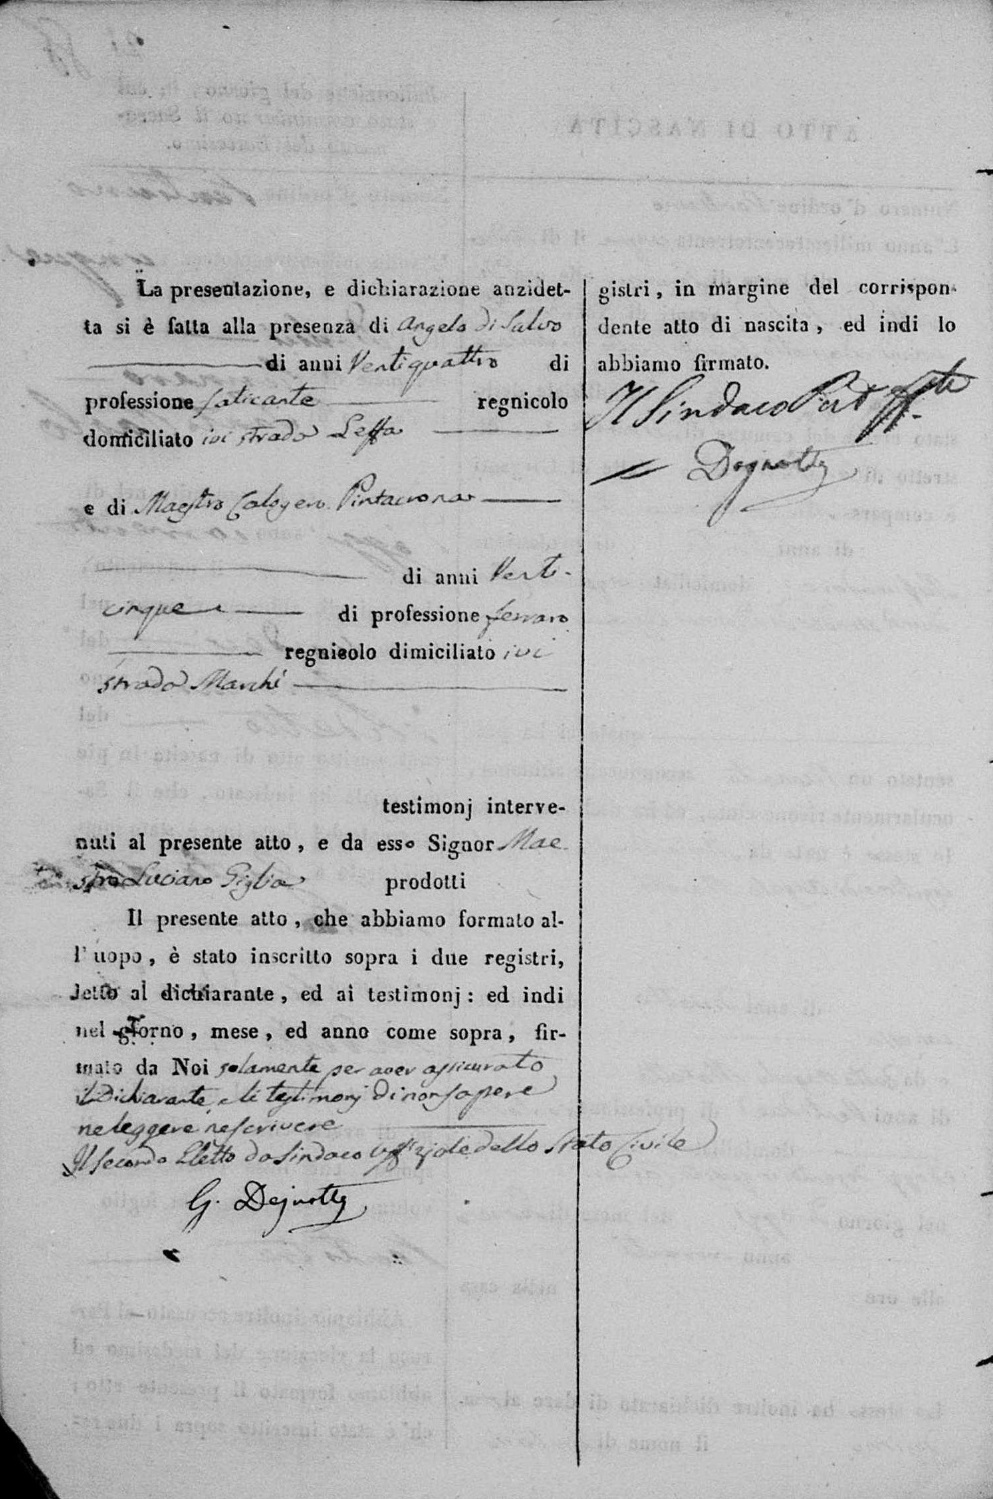 La presentazione, e dichiarazione anzidet-
ta si è fatta alla presenza di Angelo di Salvo
di anni Ventiquattro di
professione faticante regnicolo
domiciliato ivi strada Leffa
e di Maestro Calogero Pintacrona
di anni Venti-
cinque di professione ferraro
regnicolo dimiciliato ivi
strada Marchi
testimonj interve-
nuti al presente atto, e da esso Signor Mae
stro Luciano Giglia prodotti
Il presente atto, che abbiamo formato al-
l'uopo, è stato inscritto sopra i due registri,
letto al dichiarante, ed ai testimonj: ed indi
nel giorno, mese, ed anno come sopra, fir-
mato da Noi solamente per aver assicurato
il Dichiarante, e li testimonj di non sapere
ne leggere ne scrivere
Il secondo Eletto da Sindaco Uffiziale dello Stato Civile
G. Dejnotty
gistri, in margine del corrispon-
dente atto di nascita, ed indi lo
abbiamo firmato.
Il Sindaco